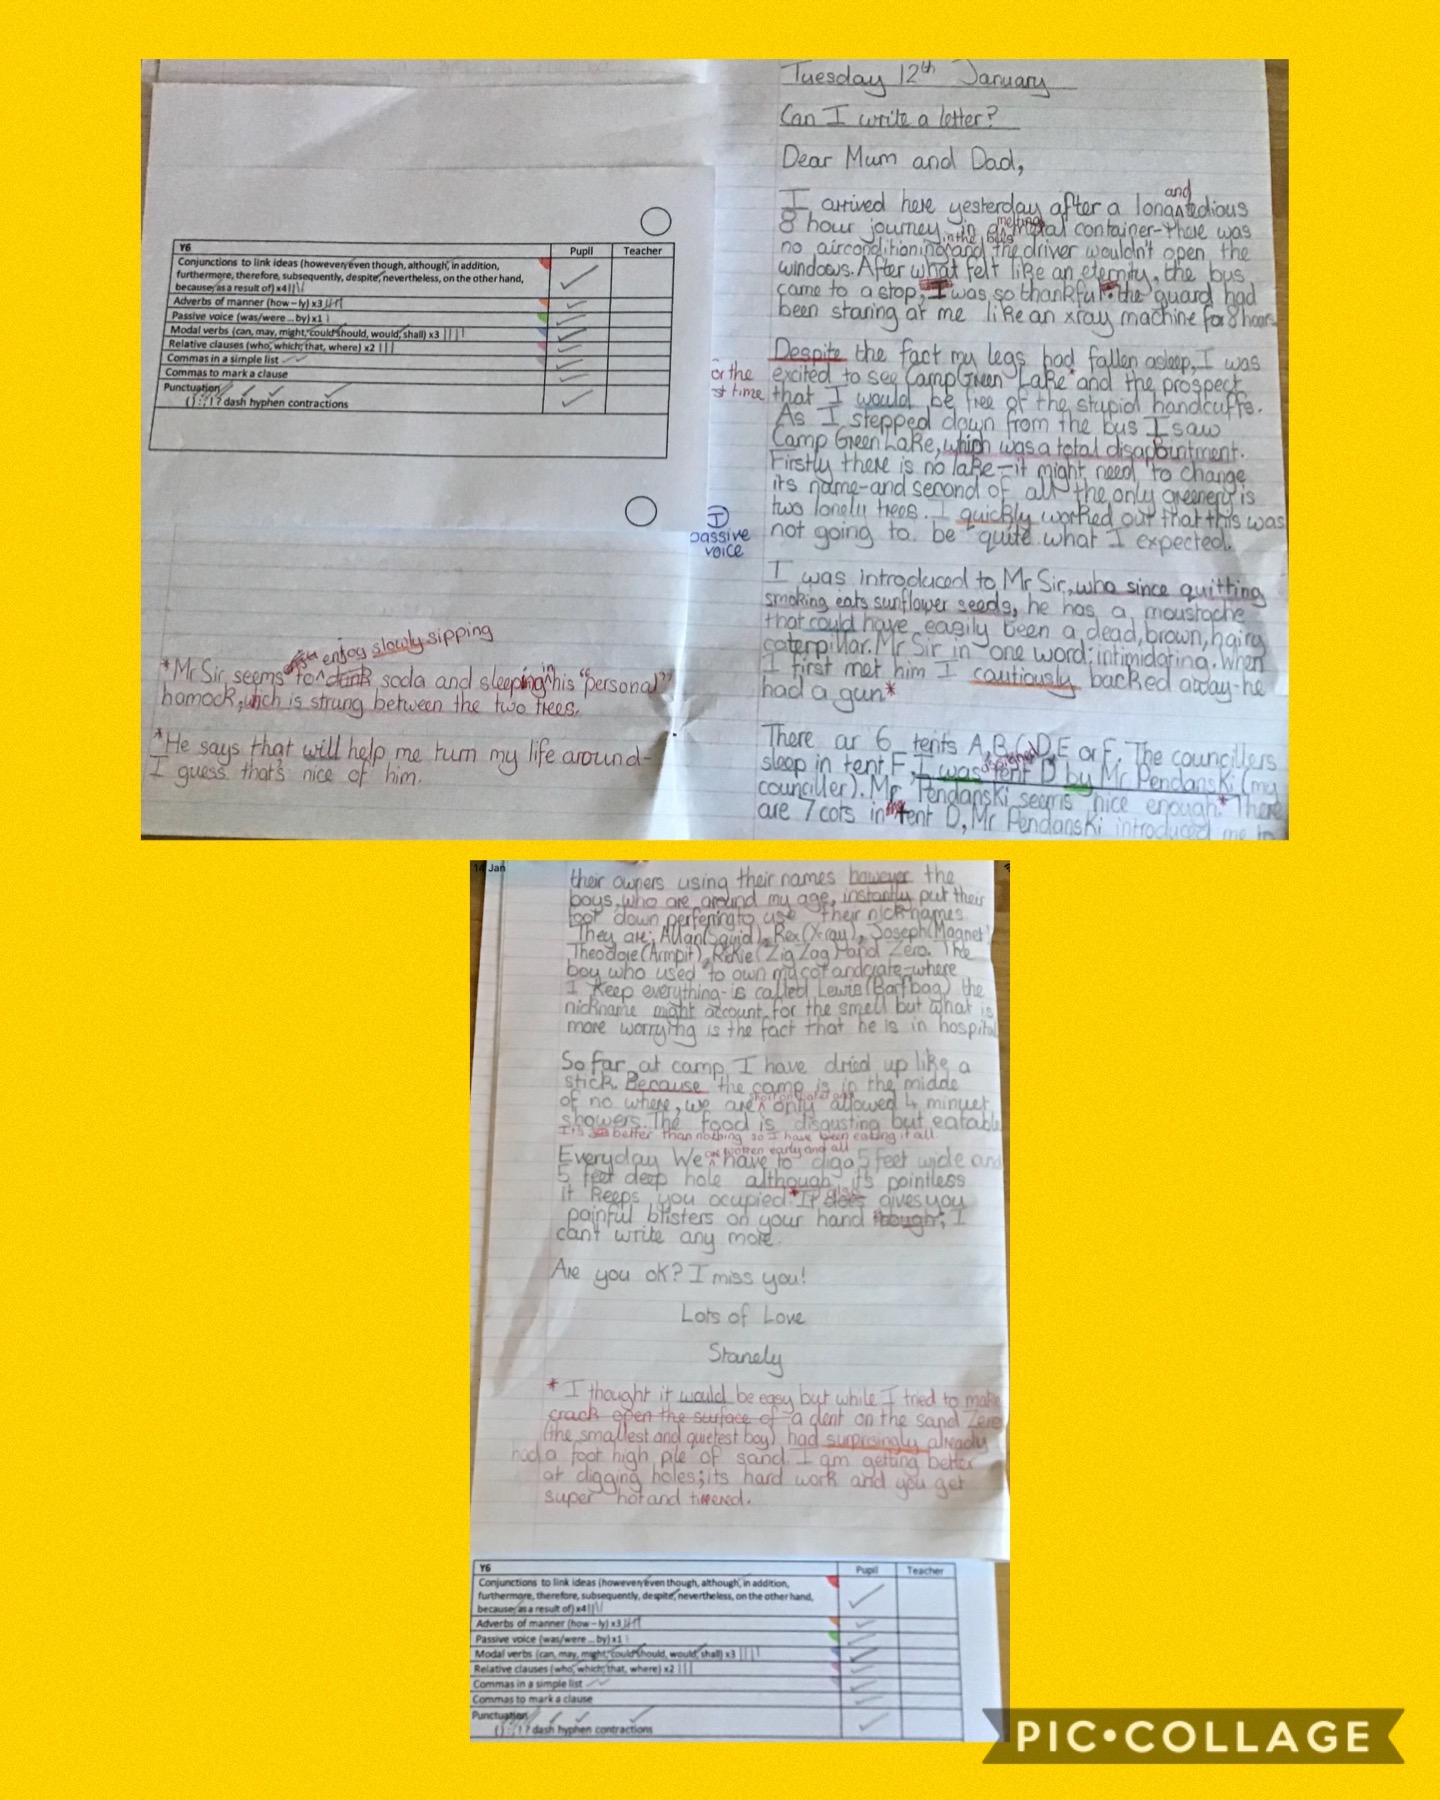 Y6 Pupil Teacher
Conjunctions to link ideas (however, even though, although, in addition,
furthermore, therefore, subsequently, despite, nevertheless, on the other hand,
because, as a result of) x4
Adverbs of manner (how – ly) x3
Passive voice (was/were ... by) x1
Modal verbs (can, may, might, could should, would, shall) x3
Relative clauses (who, which, that, where) x2
Commas in a simple list
Commas to mark a clause
Punctuation
() : ; ! ? dash hyphen contractions
*Mr Sir seems to enjoy slowly sipping soda and sleeping in his "personal"
hamock, wich is strung between the two trees.
*He says that will help me turn my life around-
I guess that's nice of him.
Tuesday 12th January
Can I write a letter?
Dear Mum and Dad,
I arrived here yesterday after a long and tedious
8 hour journey in a melting metal container-there was
no airconditioning in the bus and the driver wouldn't open the
windows. After what felt like an eternity, the bus
came to a stop, I was so thankful the guard had
been staring at me like an xray machine for 8 hours
Despite the fact my legs had fallen asleep, I was
or the excited to see Camp Green Lake* and the prospect
st time that I would be free of the stupid handcuffs.
As I stepped down from the bus I saw
Camp Green Lake, which was a total disapointment.
Firstly there is no lake-it might need to change
its name-and second of all the only greenery is
two lonely trees. I quickly worked out that this was
not going to be quite what I expected.
I passive voice
I was introduced to Mr Sir, who since quitting
smoking eats sunflower seeds, he has a moustache
that could have easily been a dead, brown, hairy
caterpillar. Mr Sir in one word: intimidating. When
I first met him I cautiously backed away-he
had a gun*
There ar 6 tents A,B,C,D,E or F. The councillers
sleep in tent F, I was assigned tent D by Mr Pendanski (my
counciller). Mr Pendanski seems nice enough.* There
are 7 cots in tent D, Mr Pendanski introduced me to
14 Jan
their owners using their names however the
boys, who are around my age, instantly put their
foot down perfering to use their nick-names.
They are; Allan(Squid), Rex(X-ray), Joseph(Magnet)
Theodore(Armpit), Rickie(Zig Zag) and Zero. The
boy who used to own my cot and crate-where
I keep everything-is called Lewis(Barfbag) the
nickname might account for the smell but what is
more worrying is the fact that he is in hospital
So far at camp I have dried up like a
stick. Because the camp is in the midde
of no where, we are only allowed 4 minuet
showers. The food is disgusting but eatable
It's better than nothing so I have been eating it all.
Everyday We are woken early and all have to dig a 5 feet wide and
5 feet deep hole although it's pointless
it keeps you ocupied.* It also gives you
painful blisters on your hand I
can't write any more.
Are you ok? I miss you!
Lots of Love
Stanely
* I thought it would be easy but while I tried to make
a dent on the sand Zero
(the smallest and quietest boy) had surprisingly already
had a foot high pile of sand. I am getting better
at digging holes; its hard work and you get
super hot and
Y6 Pupil Teacher
Conjunctions to link ideas (however, even though, although, in addition,
furthermore, therefore, subsequently, despite, nevertheless, on the other hand,
because, as a result of) x4
Adverbs of manner (how – ly) x3
Passive voice (was/were ... by) x1
Modal verbs (can, may, might, could should, would, shall) x3
Relative clauses (who, which, that, where) x2
Commas in a simple list
Commas to mark a clause
Punctuation
() : ; ! ? dash hyphen contractions
PIC•COLLAGE